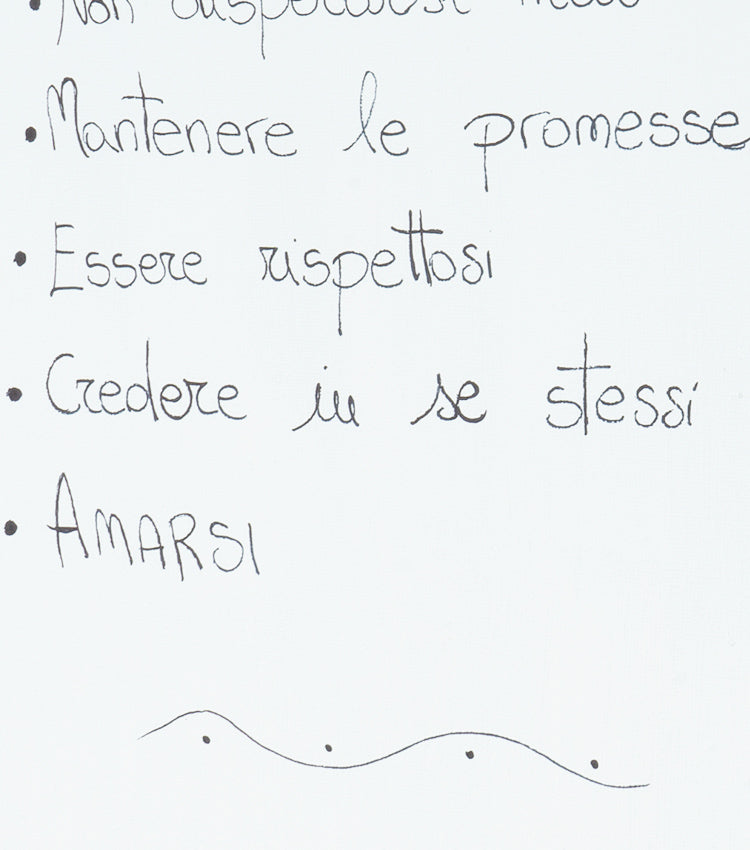 • Non
• Mantenere le promesse
• Essere rispettosi
• Credere in se stessi
• AMARSI